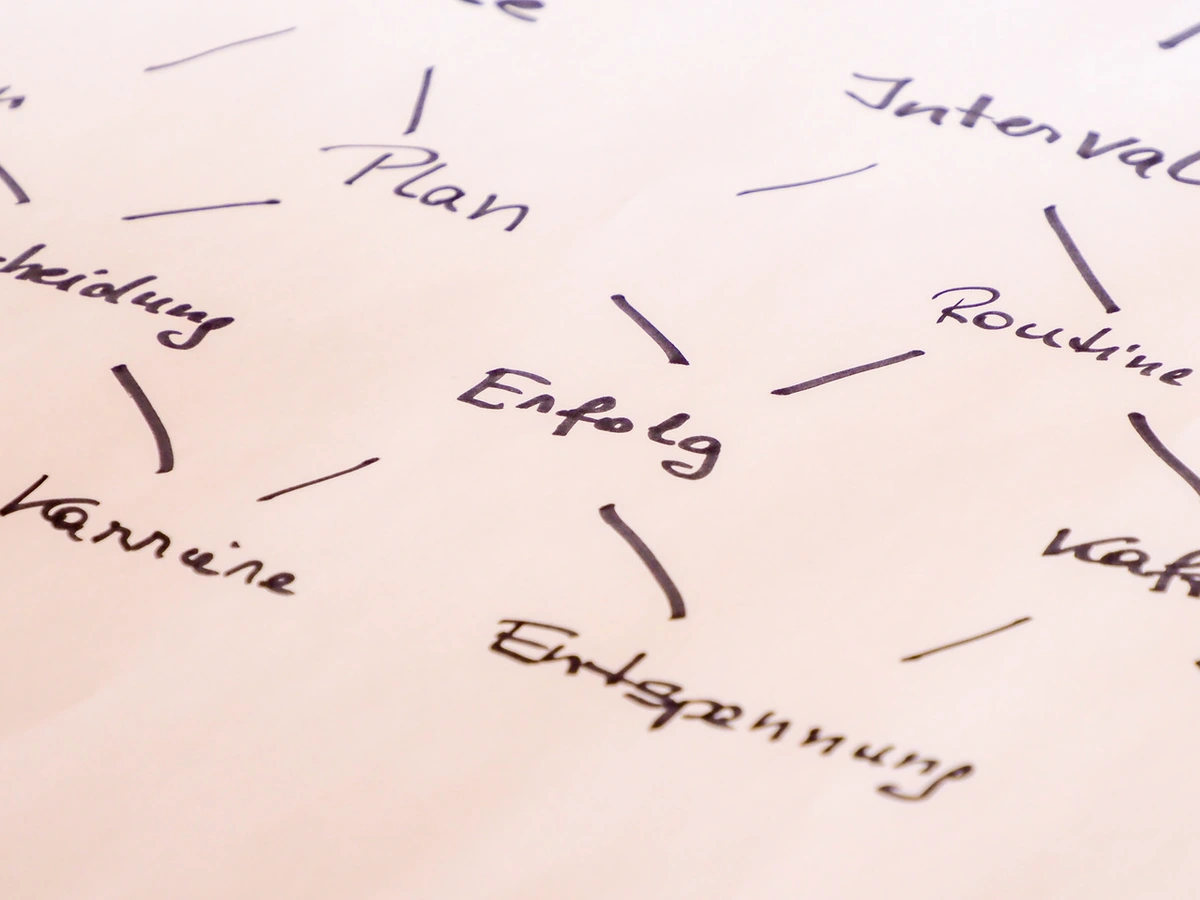 Plan
Interval
cheidung
Routine
Erfolg
Karriere
Entspannung